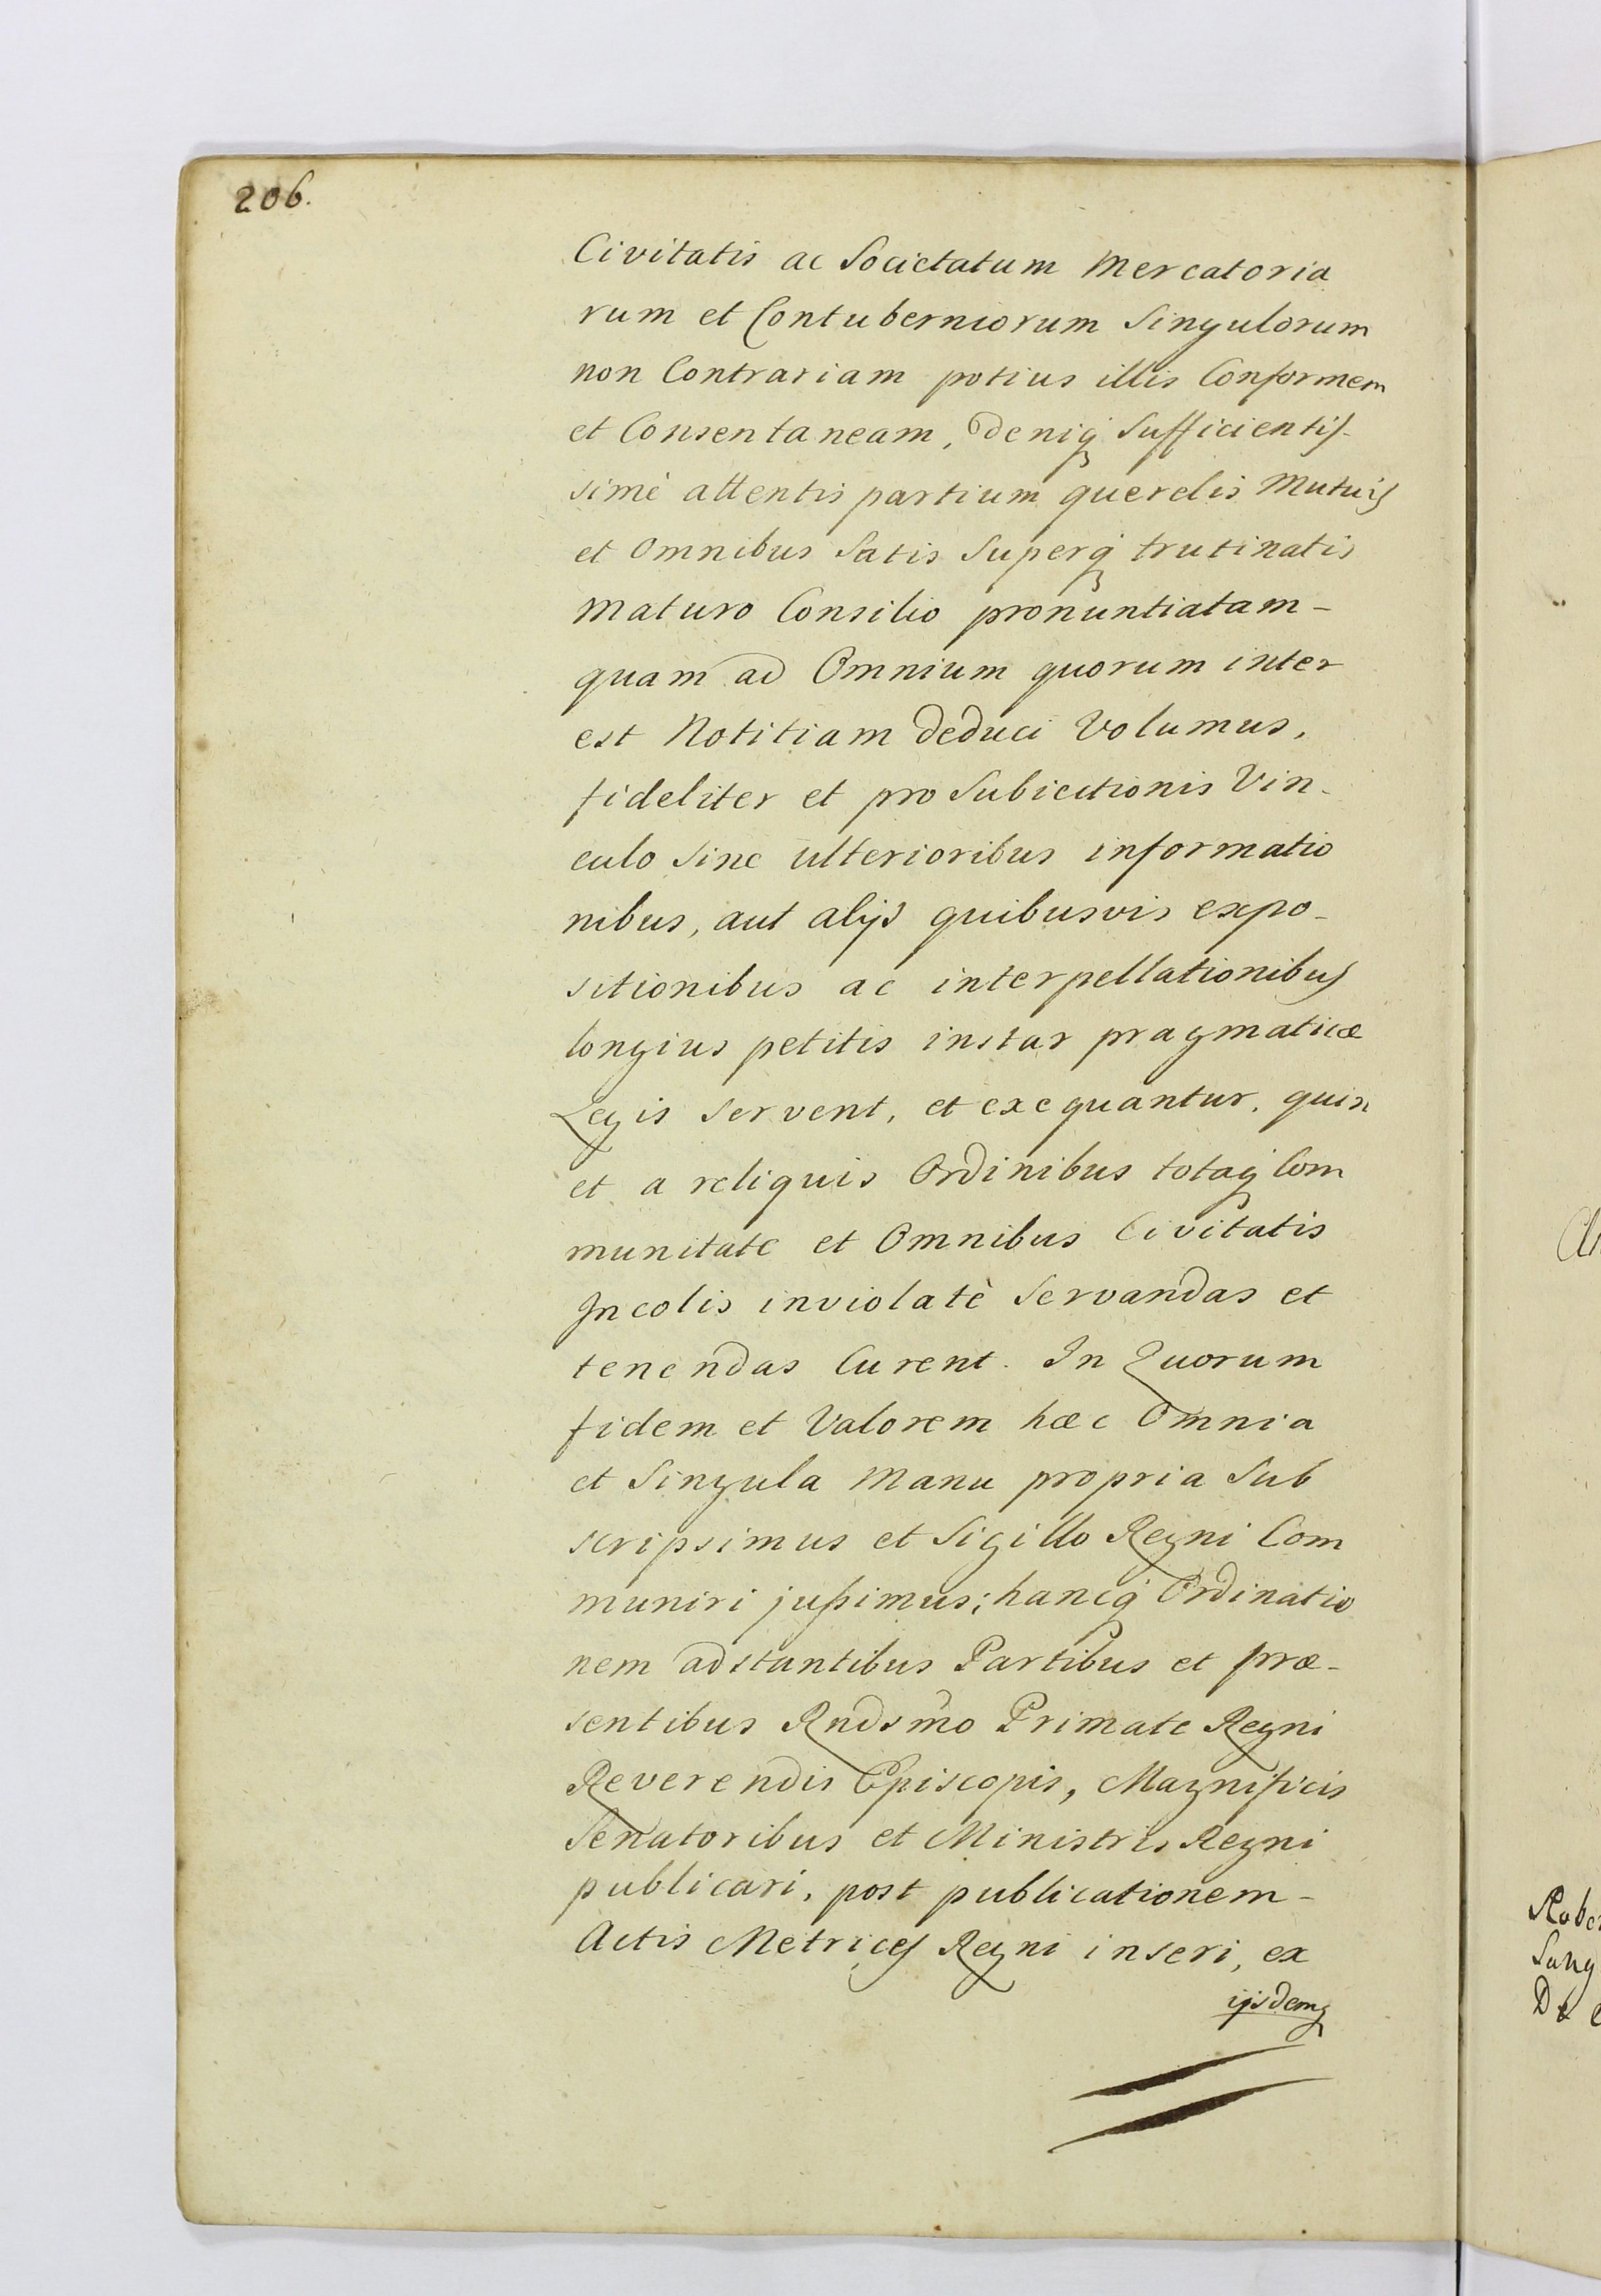 206.
Civitatis ac Societatum Mercatoria
rum et Contuberniorum Singulorum
non Contrariam potius illis Conformem
et Consentaneam, deniq Sufficientis-
simè attentis partium querelis Mutuis
et Omnibus Satis Superq trutinatis
maturo Consilio pronuntiatam-
quam ad Omnium quorum inter
est Notitiam deduci Volumus,
fideliter et pro Subiectionis Vin-
culo Sine ulterioribus informatio
nibus, aut alijs quibusvis expo-
sitionibus ac interpellationibus
longius petitis instar pragmaticæ
Legis servent, et exequantur, quin
et a reliquis Ordinibus totaq Com
munitate et Omnibus Civitatis
Incolis inviolatè Servandas et
tenendas Curent. In Quorum
fidem et Valorem hæc Omnia
et Singula Manu propria Sub
scripsimus et Sigillo Regni Com
muniri jußimus; hancq Ordinatio
nem adstantibus Partibus et præ-
sentibus Rndsmo Primate Regni
Reverendis Episcopis, Magnificis
Senatoribus et Ministris Regni
publicari, post publicationem-
Actis Metrices Regni inseri, ex
ijsdemq